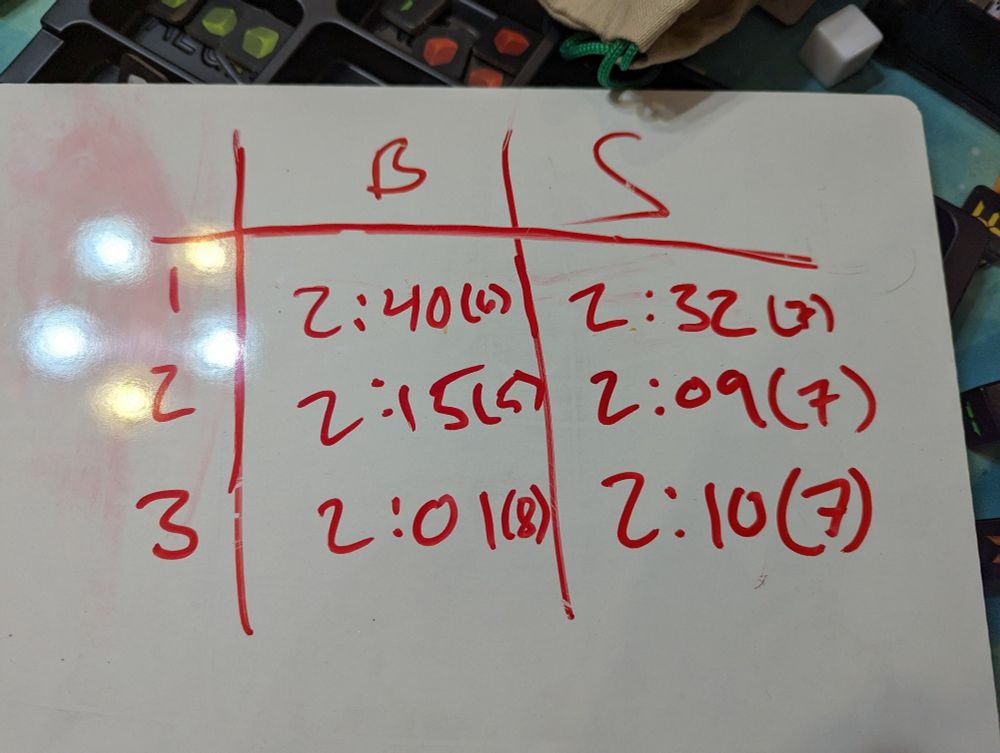 B S
1 2:40(6) 2:32(7)
2 2:15(5) 2:09(7)
3 2:01(8) 2:10(7)